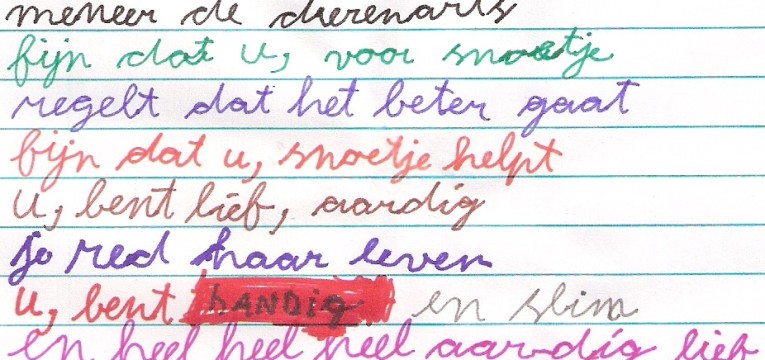 meneer de dierenarts
fijn dat u, voor snoetje
regelt dat het beter gaat
fijn dat u, snoetje helpt
u, bent lief, aardig
jo red haar leven
u, bent hANDig en slim
en heel heel heel aardig lief